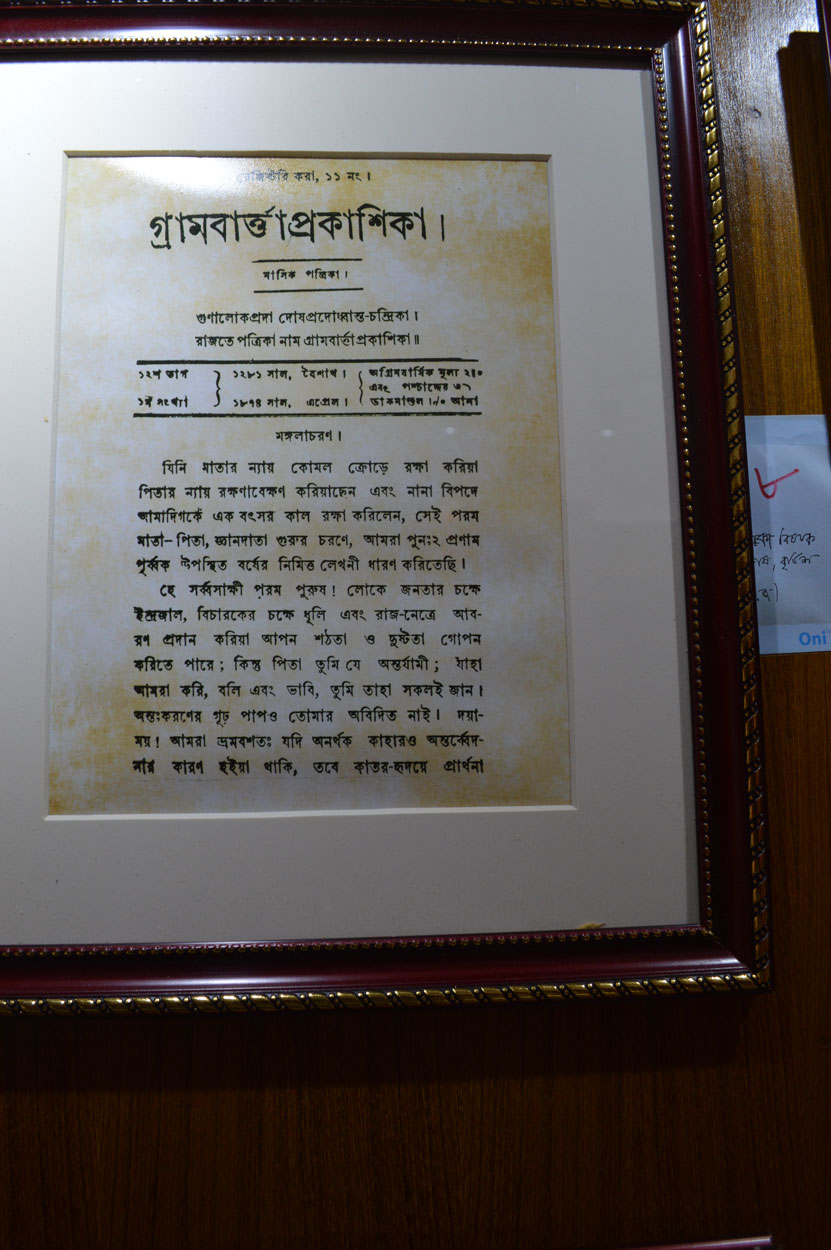 রেজিষ্টরি করা, ১১ নং ।
গ্রামবার্ত্তাপ্রকাশিকা ।
মাসিক পত্রিকা ।
গুণালোকপ্রদা দোষপ্রদোধ্বান্ত-চন্দ্রিকা ।
রাজতে পত্রিকা নাম গ্রামবার্ত্তাপ্রকাশিকা ॥
১২শ ভাগ } ১২৮১ সাল, বৈশাখ । { অগ্রিমবার্ষিক মূল্য ২॥০
এবং পশ্চাদ্দেয় ৩৲
১ম সংখ্যা } ১৮৭৪ সাল, এপ্রেল । { ডাকমাশুল ।৵০ আনা
মঙ্গলাচরণ ।
যিনি মাতার ন্যায় কোমল ক্রোড়ে রক্ষা করিয়া
পিতার ন্যায় রক্ষণাবেক্ষণ করিয়াছেন এবং নানা বিপদে
আমাদিগকে এক বৎসর কাল রক্ষা করিলেন, সেই পরম
মাতা-পিতা, জ্ঞানদাতা গুরুর চরণে, আমরা পুনঃ২ প্রণাম
পূর্ব্বক উপস্থিত বর্ষের নিমিত্ত লেখনী ধারণ করিতেছি ।
হে সর্ব্বসাক্ষী পরম পুরুষ ! লোকে জনতার চক্ষে
ইন্দ্রজাল, বিচারকের চক্ষে ধূলি এবং রাজ-নেত্রে আব-
রণ প্রদান করিয়া আপন শঠতা ও দুষ্টতা গোপন
করিতে পারে ; কিন্তু পিতা তুমি যে অন্তর্যামী ; যাহা
আমরা করি, বলি এবং ভাবি, তুমি তাহা সকলই জান ।
অন্তঃকরণের গূঢ় পাপও তোমার অবিদিত নাই । দয়া-
ময় ! আমরা ভ্রমবশতঃ যদি অনর্থক কাহারও অন্তর্ব্বেদ-
নার কারণ হইয়া থাকি, তবে কাতর-হৃদয়ে প্রার্থনা
৮
Oni